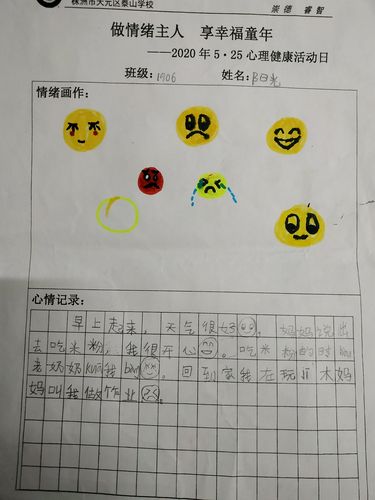 株洲市天元区泰山学校
崇德 睿智
做情绪主人 享幸福童年
——2020年5·25心理健康活动日
班级：1706 姓名：
情绪画作：
心情记录：
早上起来，天气很好。妈妈说出
去吃米粉，我很开心。吃米粉的时
老奶奶kuā我。回到家我在玩木妈
妈叫我做作业。